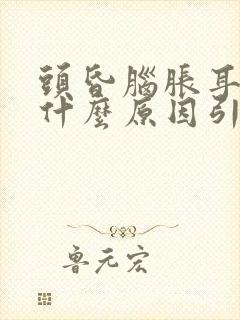 頭昏腦脹耳
什麼原因引
魯元宏